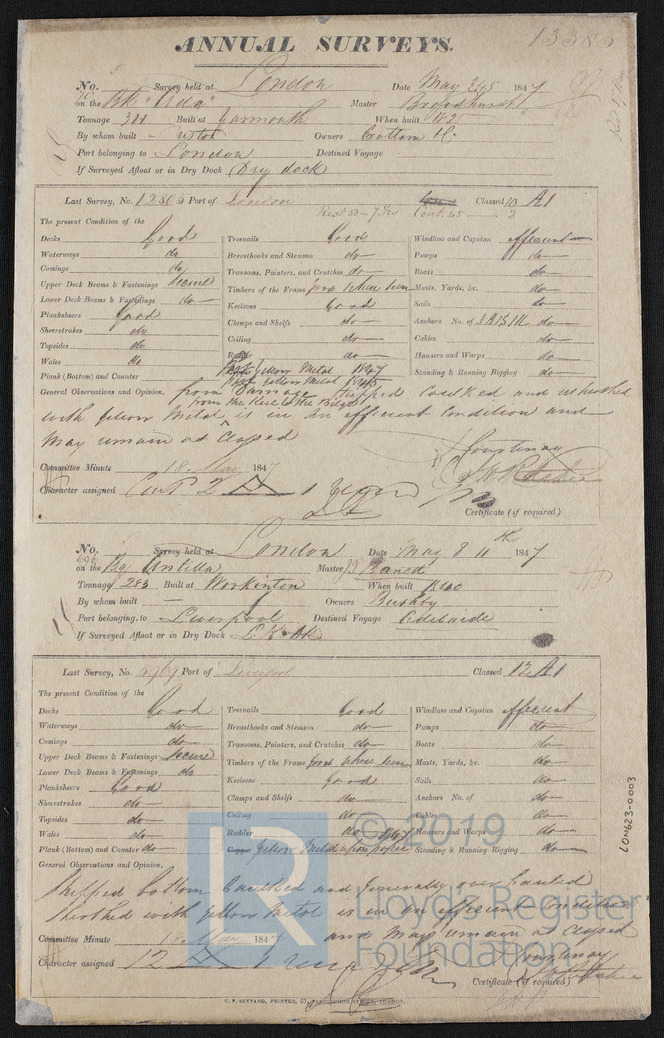 ANNUAL SURVEYS.
13380
No. Survey held at London Date May 1847
on the Bk "Ada" Master Broadhurst
Tonnage Built at Yarmouth When built 1825
By whom built Owners Cottam H.
Port belonging to London Destined Voyage
If Surveyed Afloat or in Dry Dock Dry dock
Last Survey, No. 12303 Port of London Classed 10 A1
Cont. 45 3
The present Condition of the
Decks Good Treenails Good Windlass and Capstan efficient
Waterways do Breasthooks and Stemson do Pumps do
Comings do Transoms, Pointers, and Crutches do Boats do
Upper Deck Beams & Fastenings Secure Timbers of the Frame good where seen Masts, Yards, &c. do
Lower Deck Beams & Fastenings do Keelsons Good Sails do
Planksheers Good Clamps and Shelfs do Anchors No. of do
Sheerstrakes do Ceiling do Cables do
Topsides do Rudder do Hausers and Warps do
Wales do Yellow Metal 1847 Standing & Running Rigging do
Plank (Bottom) and Counter Yellow Metal 1845
General Observations and Opinion, from Damage Stripped Caulked and resheathed
from the Keel to the Bilges
with yellow Metal is in an efficient Condition and
may remain as Classed
Courtenay
Committee Minute 18 May 1847
Character assigned Cont 2 1 year
Certificate (if required)
No. Survey held at London Date May 8 10th 1847
696
on the Bg Antilla Master
Tonnage 283 Built at Workington When built 1840
By whom built — Owners Bushby
Port belonging to Liverpool Destined Voyage Adelaide
If Surveyed Afloat or in Dry Dock
Last Survey, No. 6969 Port of Liverpool Classed 12 A1
The present Condition of the
Decks Good Treenails Good Windlass and Capstan efficient
Waterways do Breasthooks and Stemson do Pumps do
Comings do Transoms, Pointers, and Crutches do Boats do
Upper Deck Beams & Fastenings Secure Timbers of the Frame good where seen Masts, Yards, &c. do
Lower Deck Beams & Fastenings do Keelsons Good Sails do
Planksheers Good Clamps and Shelfs do Anchors No. of do
Sheerstrakes do Ceiling do Cables do
Topsides do Rudder do Hausers and Warps do
Wales do Copper Yellow Metal upon 1847 Standing & Running Rigging do
Plank (Bottom) and Counter do
General Observations and Opinion,
Stripped bottom Caulked and generally overhauled
Sheathed with yellow Metal is in an efficient Condition
and may remain as Classed
Committee Minute 18 May 1847
Courtenay
Character assigned 12 A 1
Certificate (if required)
C. F. SEYFANG, PRINTER, 57, FARRINGDON STREET, LONDON.
LON623-0003
© 2019
Lloyd's Register
Foundation